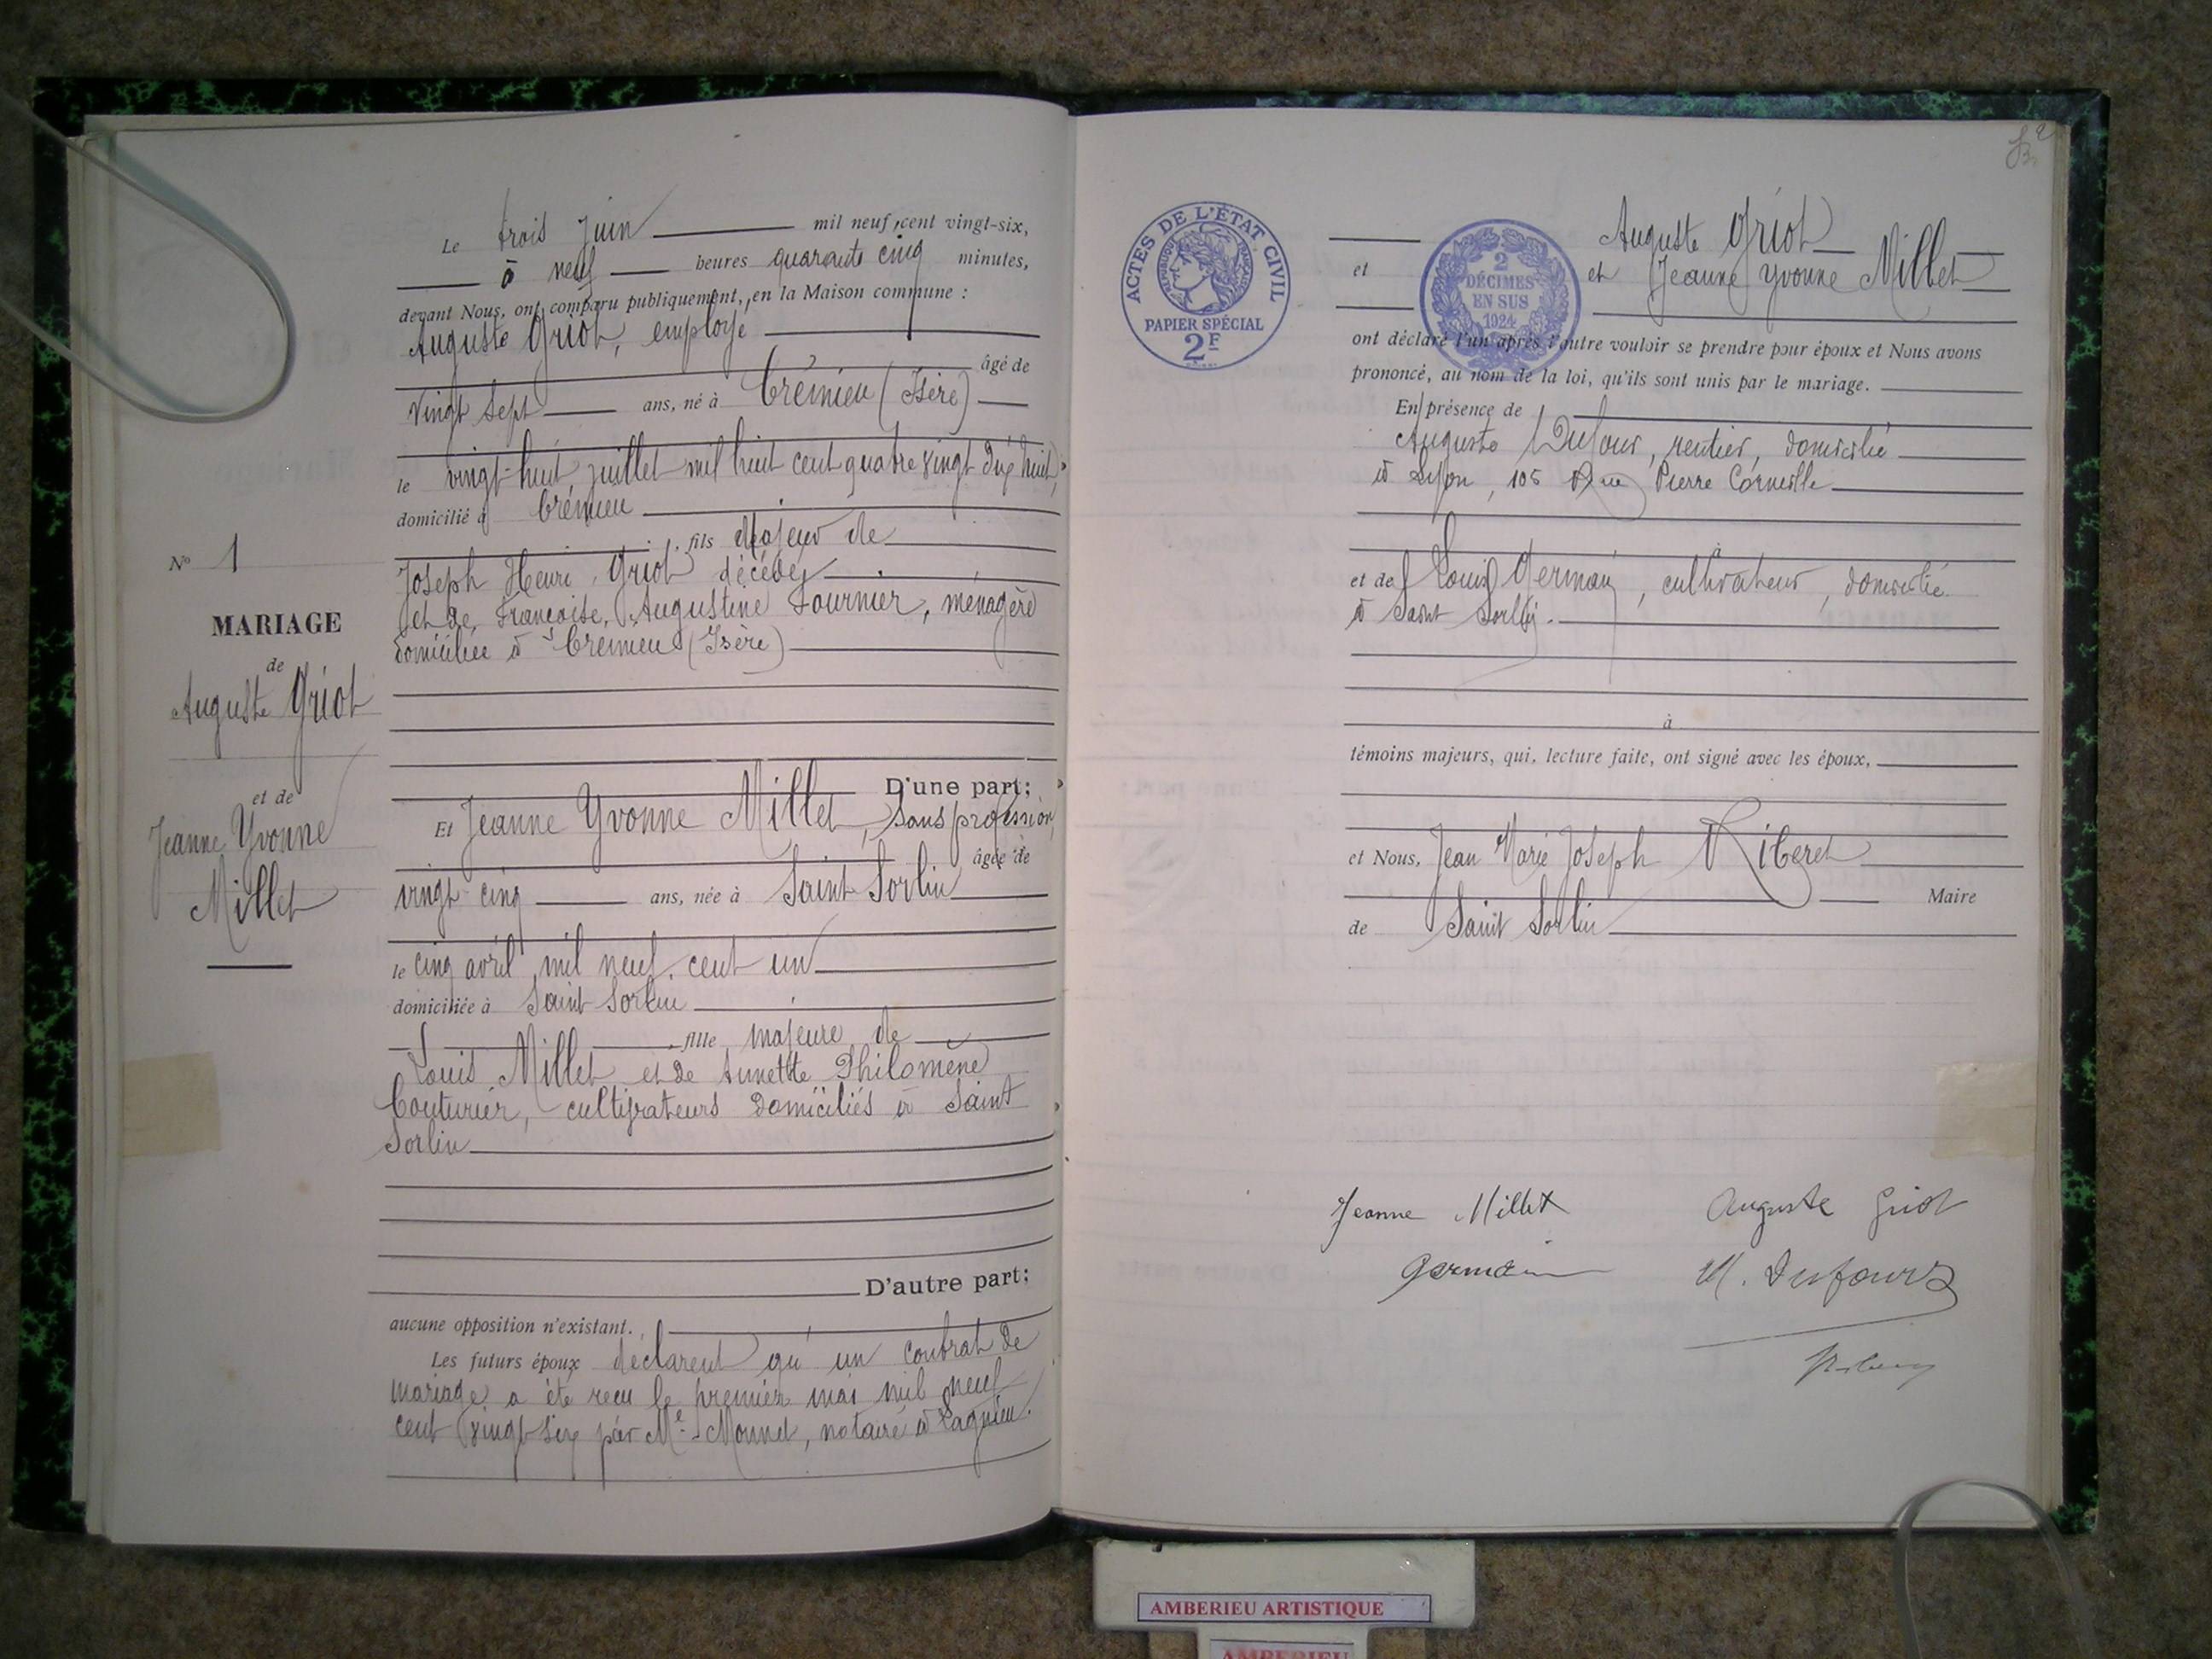 Le trois juin mil neuf cent vingt-six,
à neuf heures quarante cinq minutes,
devant Nous, ont comparu publiquement, en la Maison commune :
Auguste Griot, employé
âgé de
vingt sept ans, né à Crémieu (Isère)
le vingt-huit juillet mil huit cent quatre vingt dix huit,
domicilié à Crémieu
fils majeur de
Joseph Henri Griot décédé
et de Françoise, Augustine Fournier, ménagère
domiciliée à Crémieu (Isère)
D'une part;
Et Jeanne Yvonne Millet, sans profession,
âgée de
vingt cinq ans, née à Saint Sorlin
le cinq avril mil neuf cent un
domiciliée à Saint Sorlin
fille majeure de
Louis Millet et de Annette Philomène
Couturier, cultivateurs domiciliés à Saint
Sorlin
D'autre part;
aucune opposition n'existant.
Les futurs époux déclarent qu'un contrat de
mariage a été reçu le premier mai mil neuf
cent vingt six par Me Monnet, notaire à Lagnieu.
N° 1
MARIAGE
de
Auguste Griot
et de
Jeanne Yvonne
Millet
ACTES DE L'ÉTAT CIVIL
RÉPUBLIQUE FRANÇAISE
PAPIER SPÉCIAL
2F
2
DÉCIMES
EN SUS
1924
Auguste Griot
et et Jeanne Yvonne Millet
ont déclaré l'un après l'autre vouloir se prendre pour époux et Nous avons
prononcé, au nom de la loi, qu'ils sont unis par le mariage.
En présence de
Auguste Dufour, rentier, domicilié
à Lyon, 105 Rue Pierre Corneille
à
et de Louis Germain, cultivateur, domicilié
à Saint Sorlin.
à
témoins majeurs, qui, lecture faite, ont signé avec les époux,
et Nous, Jean Marie Joseph Riberet
Maire
de Saint Sorlin
Jeanne Millet Auguste Griot
Germain M. Dufour
AMBERIEU ARTISTIQUE
AMBERIEU